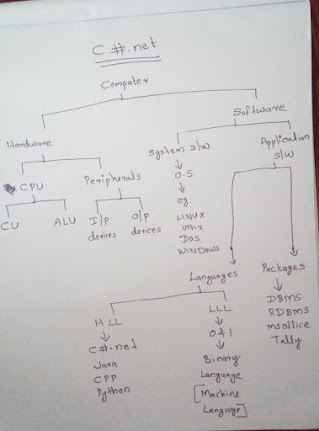 C #.net
Computer
Hardware
Software
CPU
Peripherals
System s/w
Application
s/w
CU
ALU
I/P
devices
O/P
devices
O.S
eg:
LINUX
UNIX
DOS
WINDOWS
Languages
Packages
HLL
LLL
C#.net
Java
CPP
Python
0 & 1
Binary
Language
[Machine
Language]
DBMS
RDBMS
msoffice
Tally